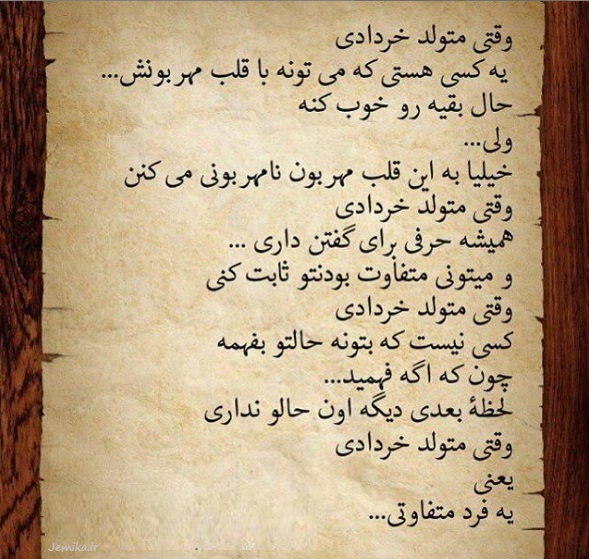 وقتی متولد خردادی
یه کسی هستی که می تونه با قلب مهربونش...
حال بقیه رو خوب کنه
ولی...
خیلیا به این قلب مهربون نامهربونی می کنن
وقتی متولد خردادی
همیشه حرفی برای گفتن داری ...
و میتونی متفاوت بودنتو ثابت کنی
وقتی متولد خردادی
کسی نیست که بتونه حالتو بفهمه
چون که اگه فهمید...
لحظهٔ بعدی دیگه اون حالو نداری
وقتی متولد خردادی
یعنی
یه فرد متفاوتی...
Jemika.ir